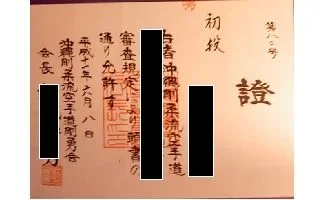 第八〇号
證
初段
者沖縄剛柔流空手道
審査規定により頭書の
通り允許す
平成十年六月八日
沖縄剛柔流空手道剛勇会
会長